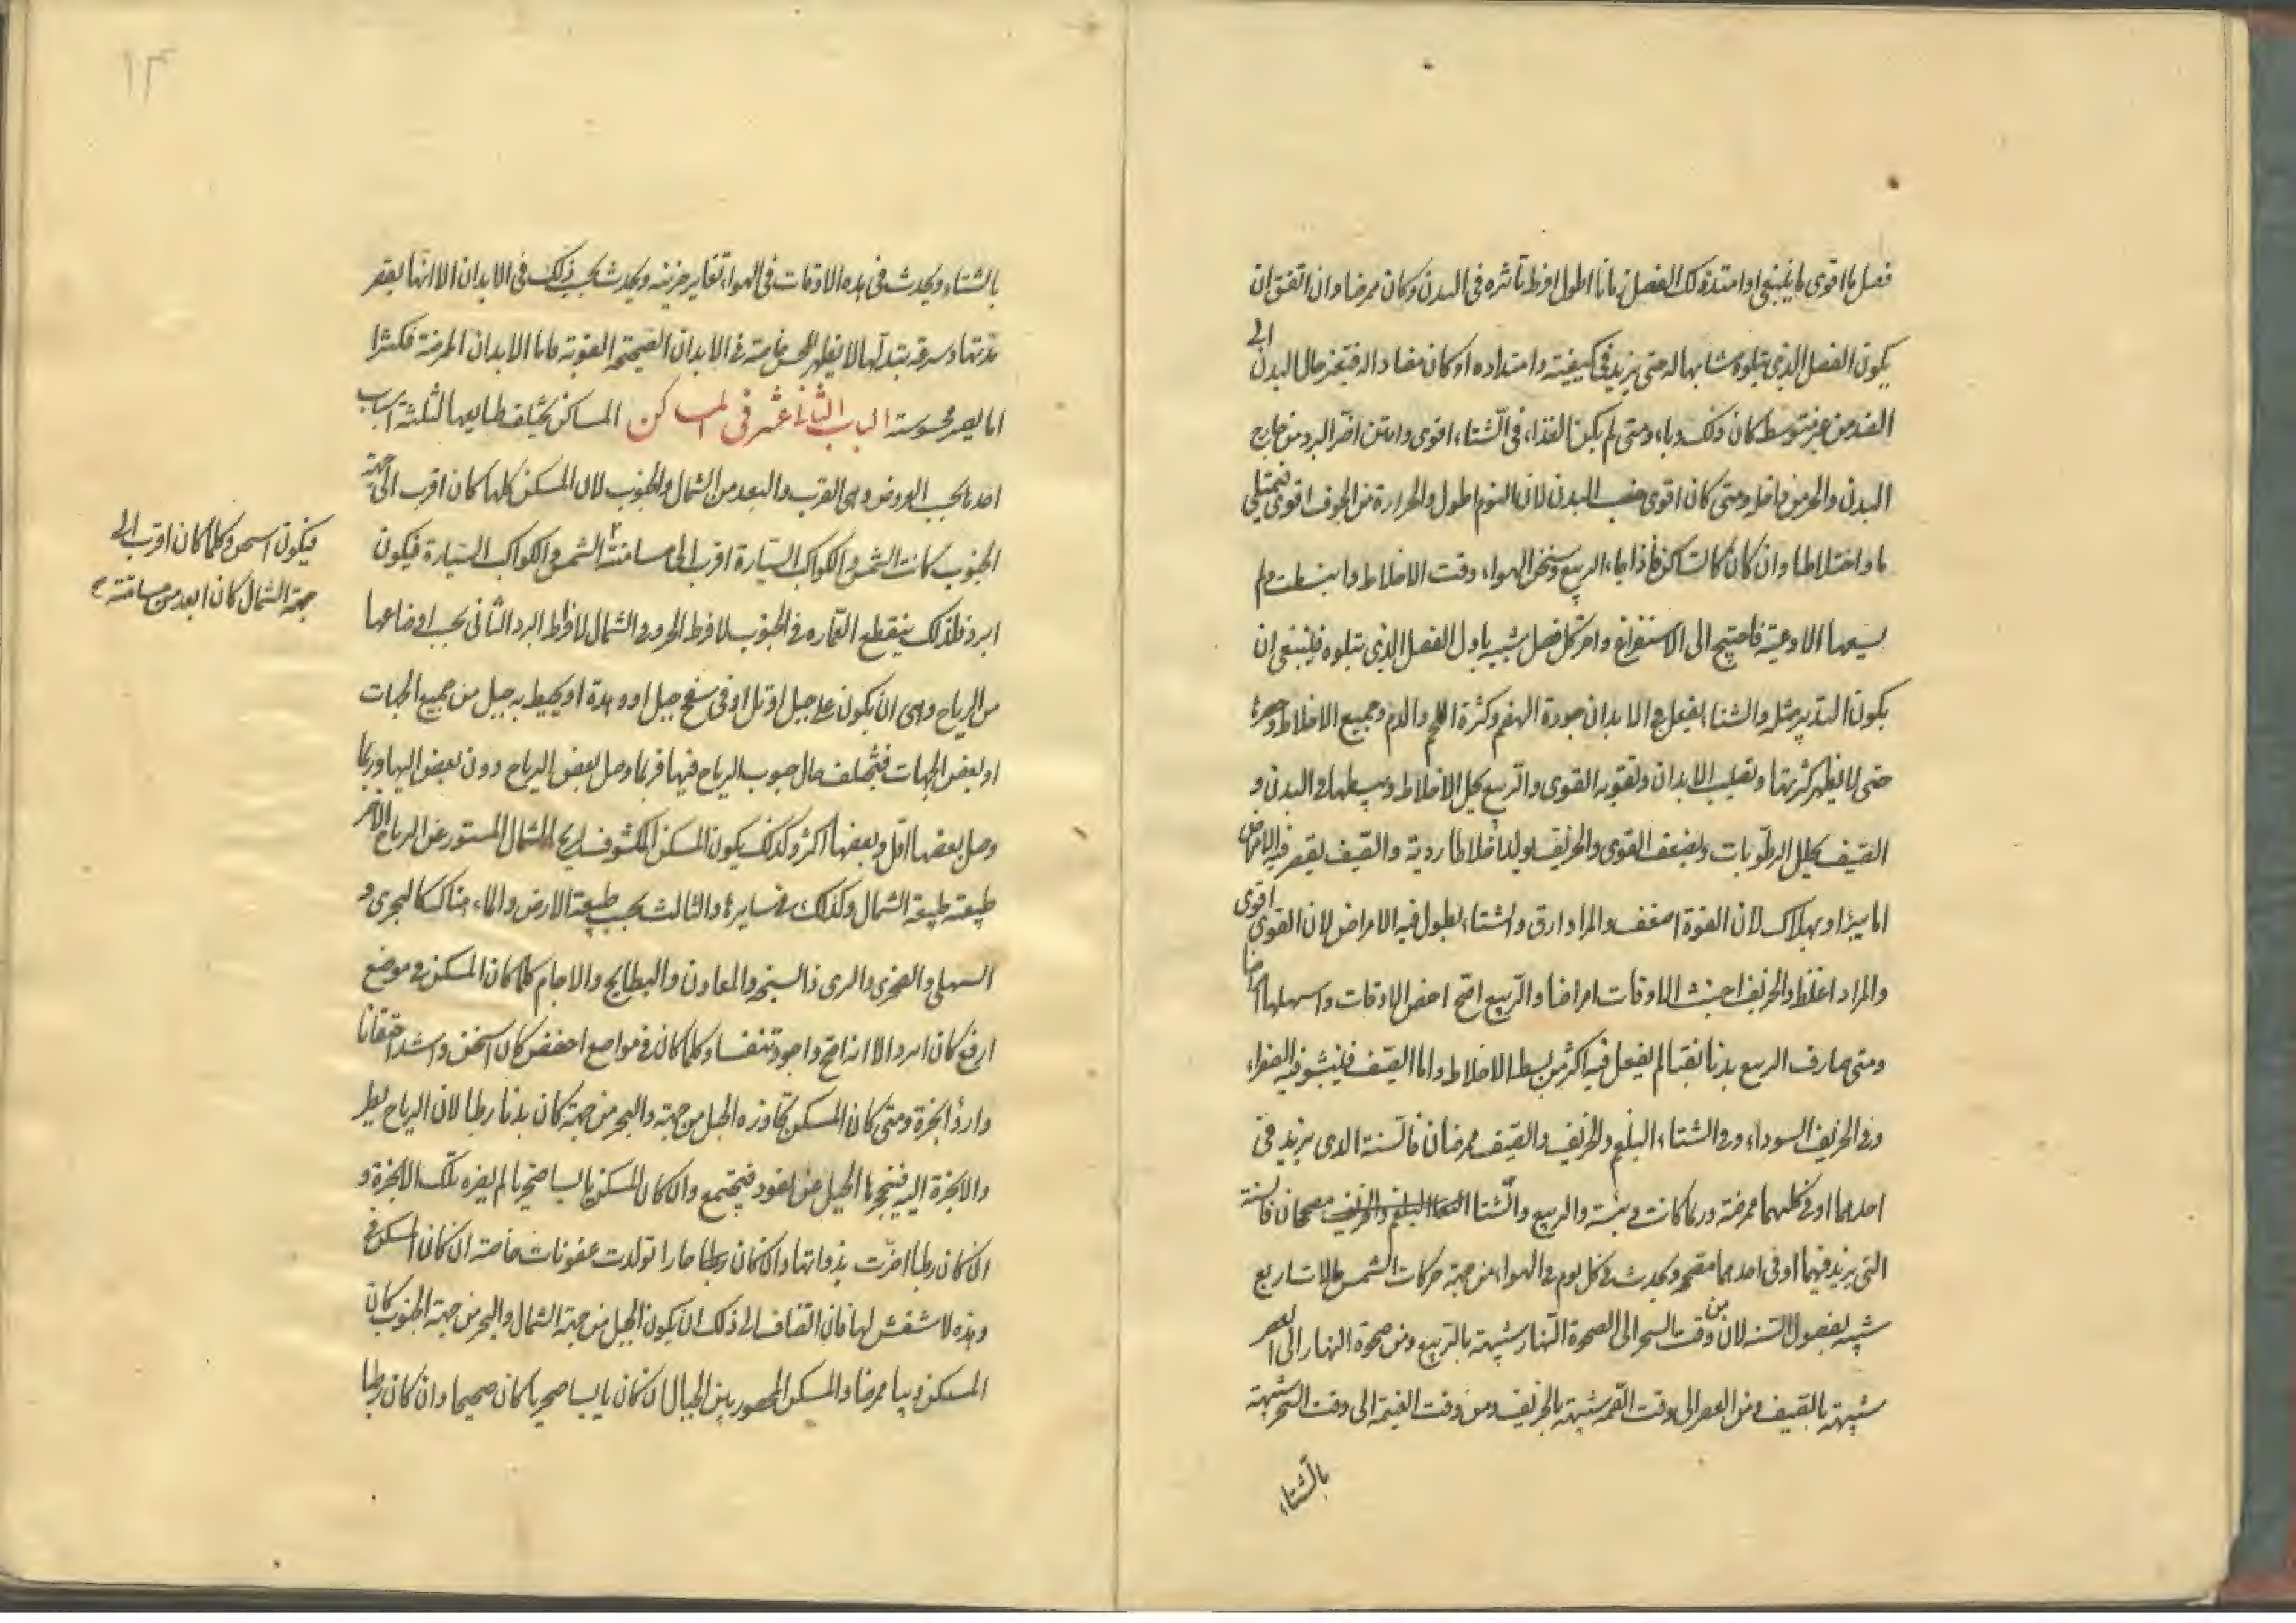 فصل ما اقوى ما ينبغى او امتد ذلك الفصل زمانا اطول افرط تأثره فى البدن وكان ممرضا وان اتفق ان
يكون الفصل الذى يتلوه مشابها له حتى يزيد فى كيفيته وامتداده او كان مضادا له فتغير حال البدن الى
الضد من غير متوسط كان ذلك وباء ومتى لم يكن الغذاء فى الشتاء اقوى وامتن اضر البرد من خارج
البدن والحر من داخله ومتى كان اقوى خصب البدن لان النوم اطول والحرارة من الجوف اقوى فيمتلى
ما واخلاطا وان كان كالساكن فاذا جاء الربيع وسخن الهواء رقت الاخلاط وانبسطت ولم
يسعها الاوعية فاحتيج الى الاستفراغ واخر كل فصل شبيه باول الفصل الذى يتلوه فينبغى ان
يكون التدبير مثله والشتاء يفعل فى الابدان جودة الهضم وكثرة اللحم والدم وجميع الاخلاط
حتى لا يظهر كثرتها وتصليب الابدان وتقوية القوى والربيع يحل الاخلاط ويبسطها فى البدن و
الصيف يحلل الرطوبات ويضعف القوى والخريف يولد اخلاطا ردية والصيف يقصر فيه الامراض
اما ببرء او بهلاك لان القوة اضعف والمواد ارق والشتاء يطول فيه الامراض لان القوى اقوى
والمواد اغلظ والخريف اخبث الاوقات امراضا والربيع اصح اخص الاوقات واسهلها
ومتى صارف الربيع بدنا نقيا لم يفعل فيه اكثر من بسط الاخلاط واما الصيف فينشو فيه الصفراء
وفى الخريف السوداء وفى الشتاء البلغم والخريف والصيف ممرضان فالسنة الذى يزيد فى
احدهما او فى كليهما ممرضة وربما كانت وبيئة والربيع والشتا مصحان فالسنة
التى يزيد فيهما او فى احدهما مصحة ويحدث فى كل يوم فى الهواء من جهة حركات الشمس
شبيه بفصول السنة لان من وقت السحر الى الضحوة النهار شبيهة بالربيع ومن ضحوة النهار الى العصر
شبيهة بالصيف ومن العصر الى وقت العتمة شبيهة بالخريف ومن وقت العتمة الى وقت السحر شبيهة
بالشتاء
١٣
بالشتاء ويحدث فى هذه الاوقات فى الهواء تغاير جزئيه ويحدث بحسب ذلك فى الابدان الا انها بقصر
مدتها وسرعة تبدلها لا يظهر للحس خاصة فى الابدان الصحيحة القوية فاما الابدان الممرضة فكثيرا
اما يصير محسوسة الباب الثانى عشر فى المساكن المساكن يختلف طبايعها لثلثة اسباب
احدها بحسب العروض وهى القرب والبعد من الشمال والجنوب لان المسكن كلما كان اقرب الى جهة
الجنوب كانت الشمس والكواكب السيارة اقرب الى مسامتته الشمس والكواكب السيارة فيكون
فيكون اسخن وكلما كان اقرب الى
جهة الشمال كان ابعد من مسامتة
ابرد فلذلك ينقطع العماره فى الجنوب لافراط الحر وفى الشمال لافراط البرد الثانى بحسب اوضاعها
من الرياح وهى ان يكون على جبل او تل او فى سفح جبل او وهدة او يحيط به جبل من جميع الجهات
او بعض الجهات فتختلف حال هبوب الرياح فيها فربما وصل بعض الرياح دون بعض اليها وربما
وصل بعضها اقل وبعضها اكثر وكذلك يكون المسكن المكشوف لريح الشمال المستور عن الرياح الاخر
طبيعته طبيعة الشمال وكذلك فى سايرها والثالث بحسب طبيعة الارض والماء هناك كالبحرى و
السهلى والصخرى والبرى والسبخة والمعادن والبطايح والاجام كلما كان المسكن فى موضع
ارفع كان ابرد الا انه اصح واجود تنفسا وكلما كان فى مواضع اخفض كان اسخن واشد احتقانا
واردأ ابخرة ومتى كان المسكن تجاوزه الجبل من جهة والبحر من جهة كان بدنا رطبا لان الرياح
والابخرة اليه فيمنعها الجبل عن نفوذ فيجتمع وان كان المسكن يابسا صخريا لم يضره تلك الابخرة و
ان كان رطبا اضرت بذواتها وان كان رطبا حارا تولدت عفونات خاصة ان كان المسكن فى
وهذه لا تنفس لها فان انضاف الى ذلك ان يكون الجبل من جهة الشمال والبحر من جهة الجنوب كان
المسكن وبيا ممرضا والمسكن المحصور بين الجبال ان كان يابسا صخريا كان صحيحا وان كان رطبا